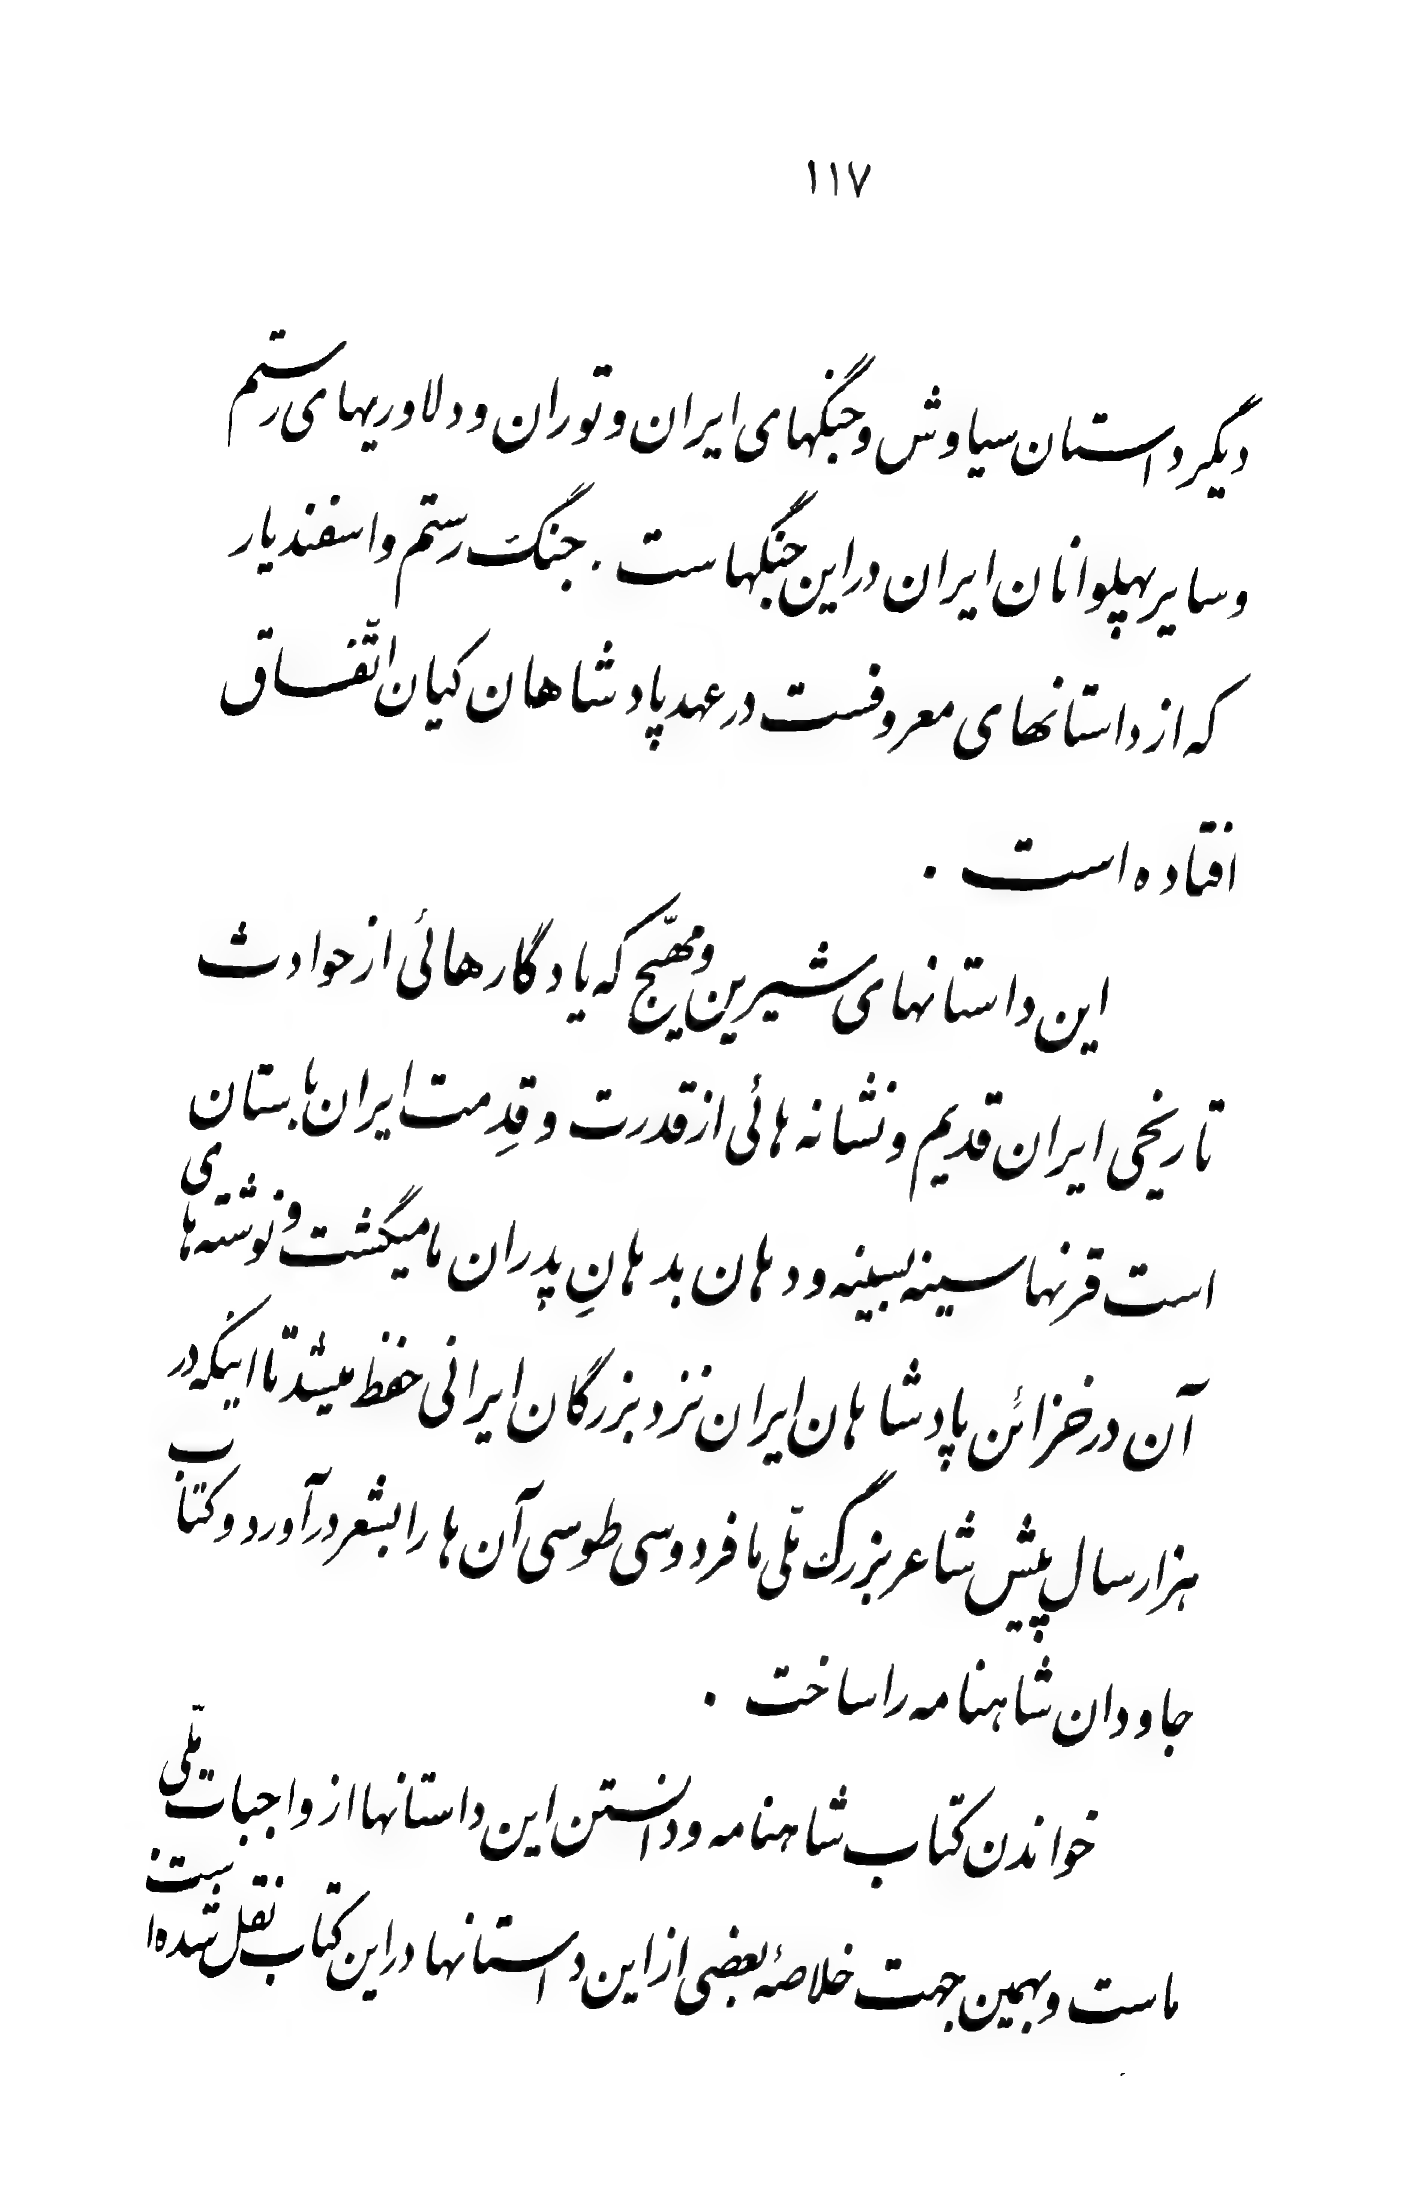 ۱۱۷
دیگر داستان سیاوش و جنگهای ایران و توران و دلاوریهای رستم
و سایر پهلوانان ایران در این جنگهاست . جنگ رستم و اسفندیار
که از داستانهای معروفست در عهد پادشاهان کیان اتّفاق
افتاده است .
این داستانهای شیرین و مهیّج که یادگارهائی از حوادث
تاریخی ایران قدیم و نشانه هائی از قدرت و قدِمت ایران باستان
است قرنها سینه بسینه و دهان بدهانِ پدران ما میگشت و نوشته های
آن در خزائن پادشاهان ایران نزد بزرگان ایرانی حفظ میشد تا اینکه در
هزار سال پیش شاعر بزرگ ملّی ما فردوسی طوسی آن ها را بشعر درآورد و کتاب
جاودان شاهنامه را ساخت .
خواندن کتاب شاهنامه و دانستن این داستانها از واجبات ملّی
ماست و بهمین جهت خلاصهٔ بعضی از این داستانها در این کتاب نقل شده است